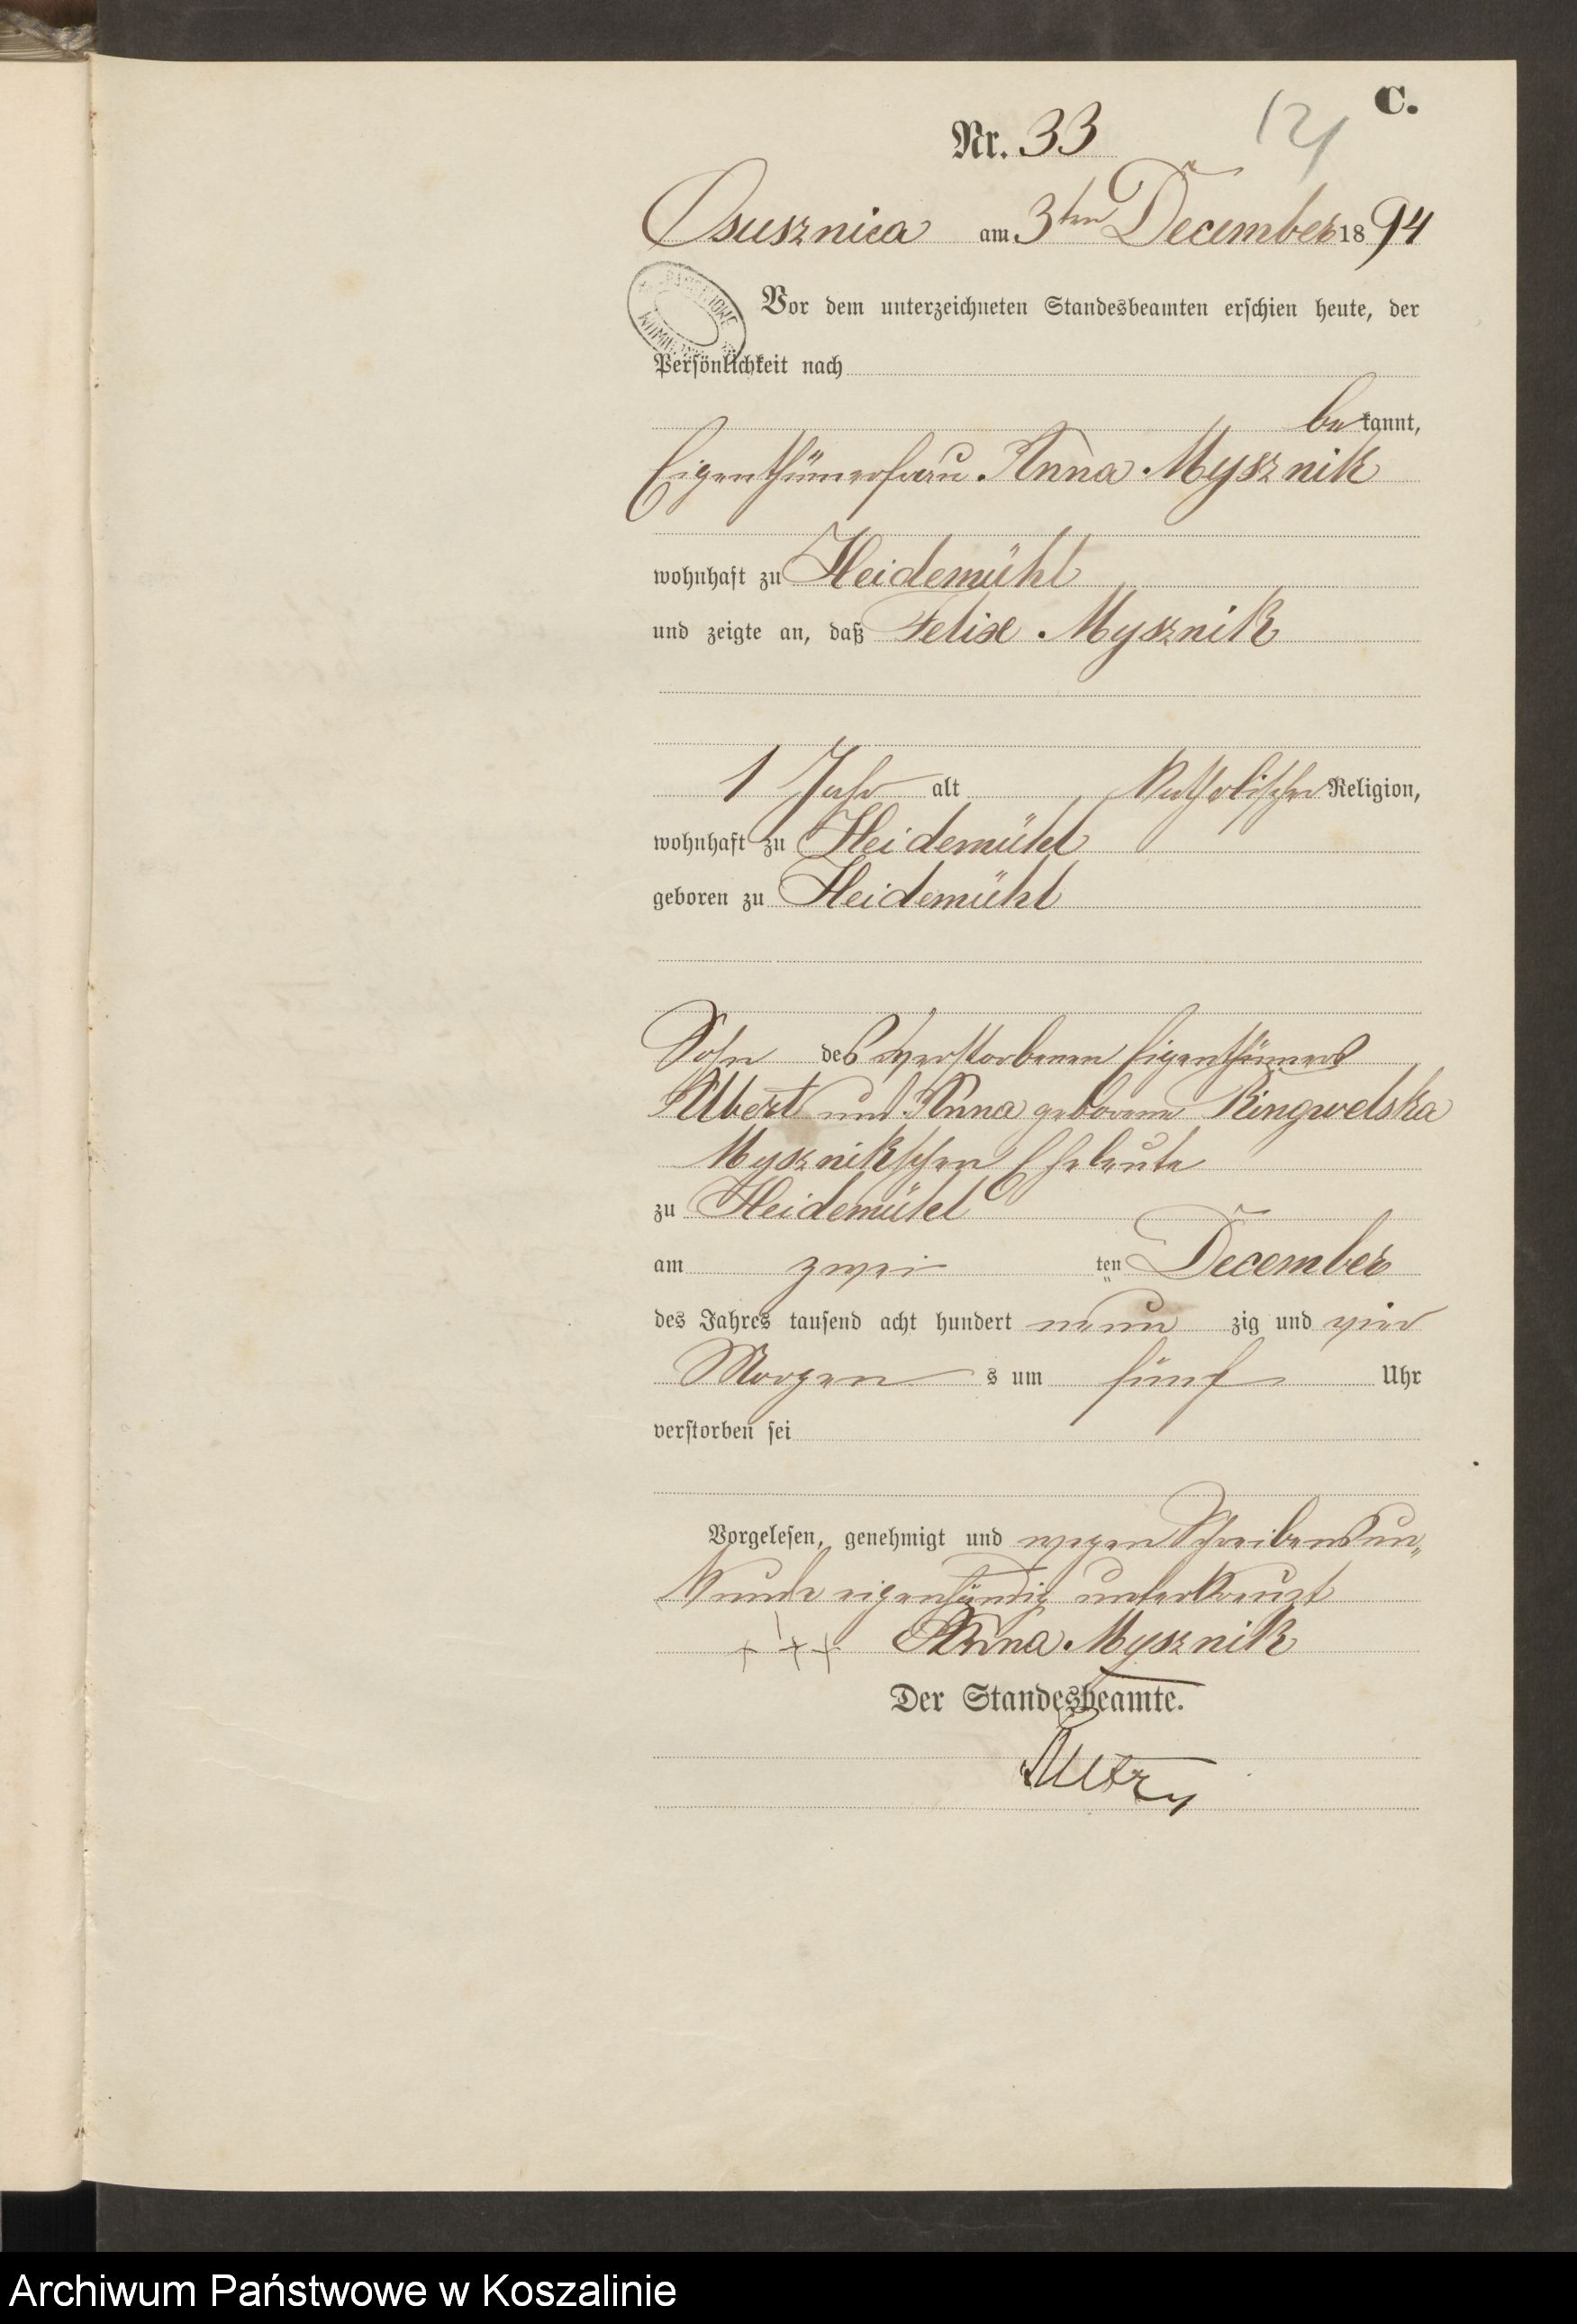 C.
Nr. 33
Osusznica am 3ten December 1894
Vor dem unterzeichneten Standesbeamten erschien heute, der
Persönlichkeit nach
bekannt,
Eigenthümerfrau Anna Mysznik
wohnhaft zu Heidemühl
und zeigte an, daß Felix Mysznik
1 Jahr alt Katholischer Religion,
wohnhaft zu Heidemühl
geboren zu Heidemühl
Sohn des verstorbenen Eigenthümers
Albert und Anna geborene Ringwelska
Mysznikschen Eheleute
zu Heidemühl
am zwei ten December
des Jahres tausend acht hundert neun zig und vier
Morgen s um fünf Uhr
verstorben sei
Vorgelesen, genehmigt und wegen Schreibensun-
kunde eigenhändig unterkreuzt
+++ Anna Mysznik
Der Standesbeamte.
Archiwum Państwowe w Koszalinie